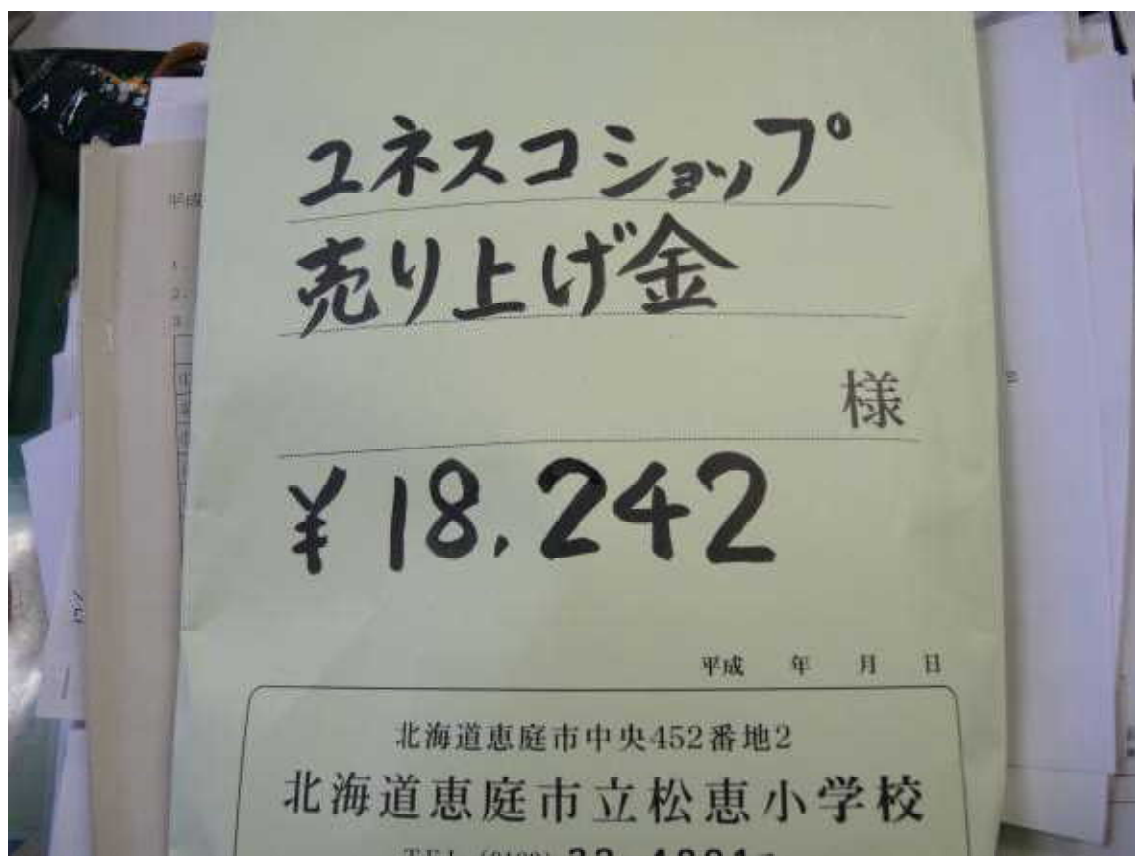 ユネスコショップ
売り上げ金
様
¥18,242
平成　年　月　日
北海道恵庭市中央452番地2
北海道恵庭市立松恵小学校
平成
1.
2.
3.